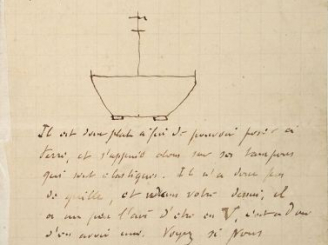 Il est donc plat afin de pouvoir poser à
terre, et s'appuie alors sur ses tampons
qui sont élastiques. Il n'a donc pas
de quille, et dans votre dessin, il
a un peu l'air d'être en V, c'est-à-dire
d'en avoir une. Voyez si nous